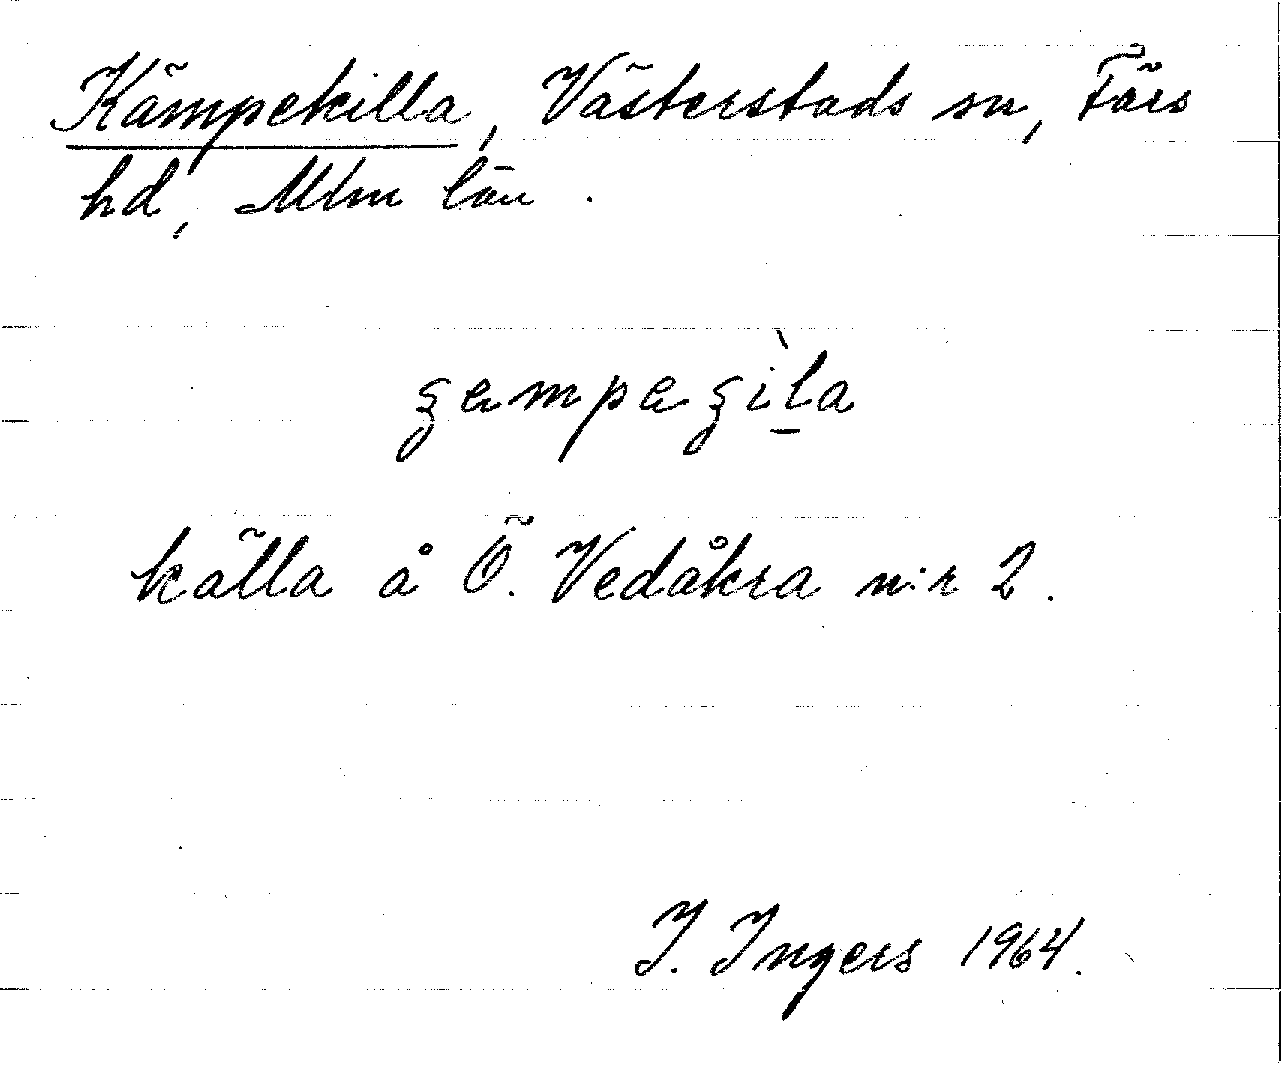 Kämpekilla, Västerstads sn, Färs
hd, Mlm län.
källa å Ö. Vedåkra n:r 2.
I. Ingers 1964.